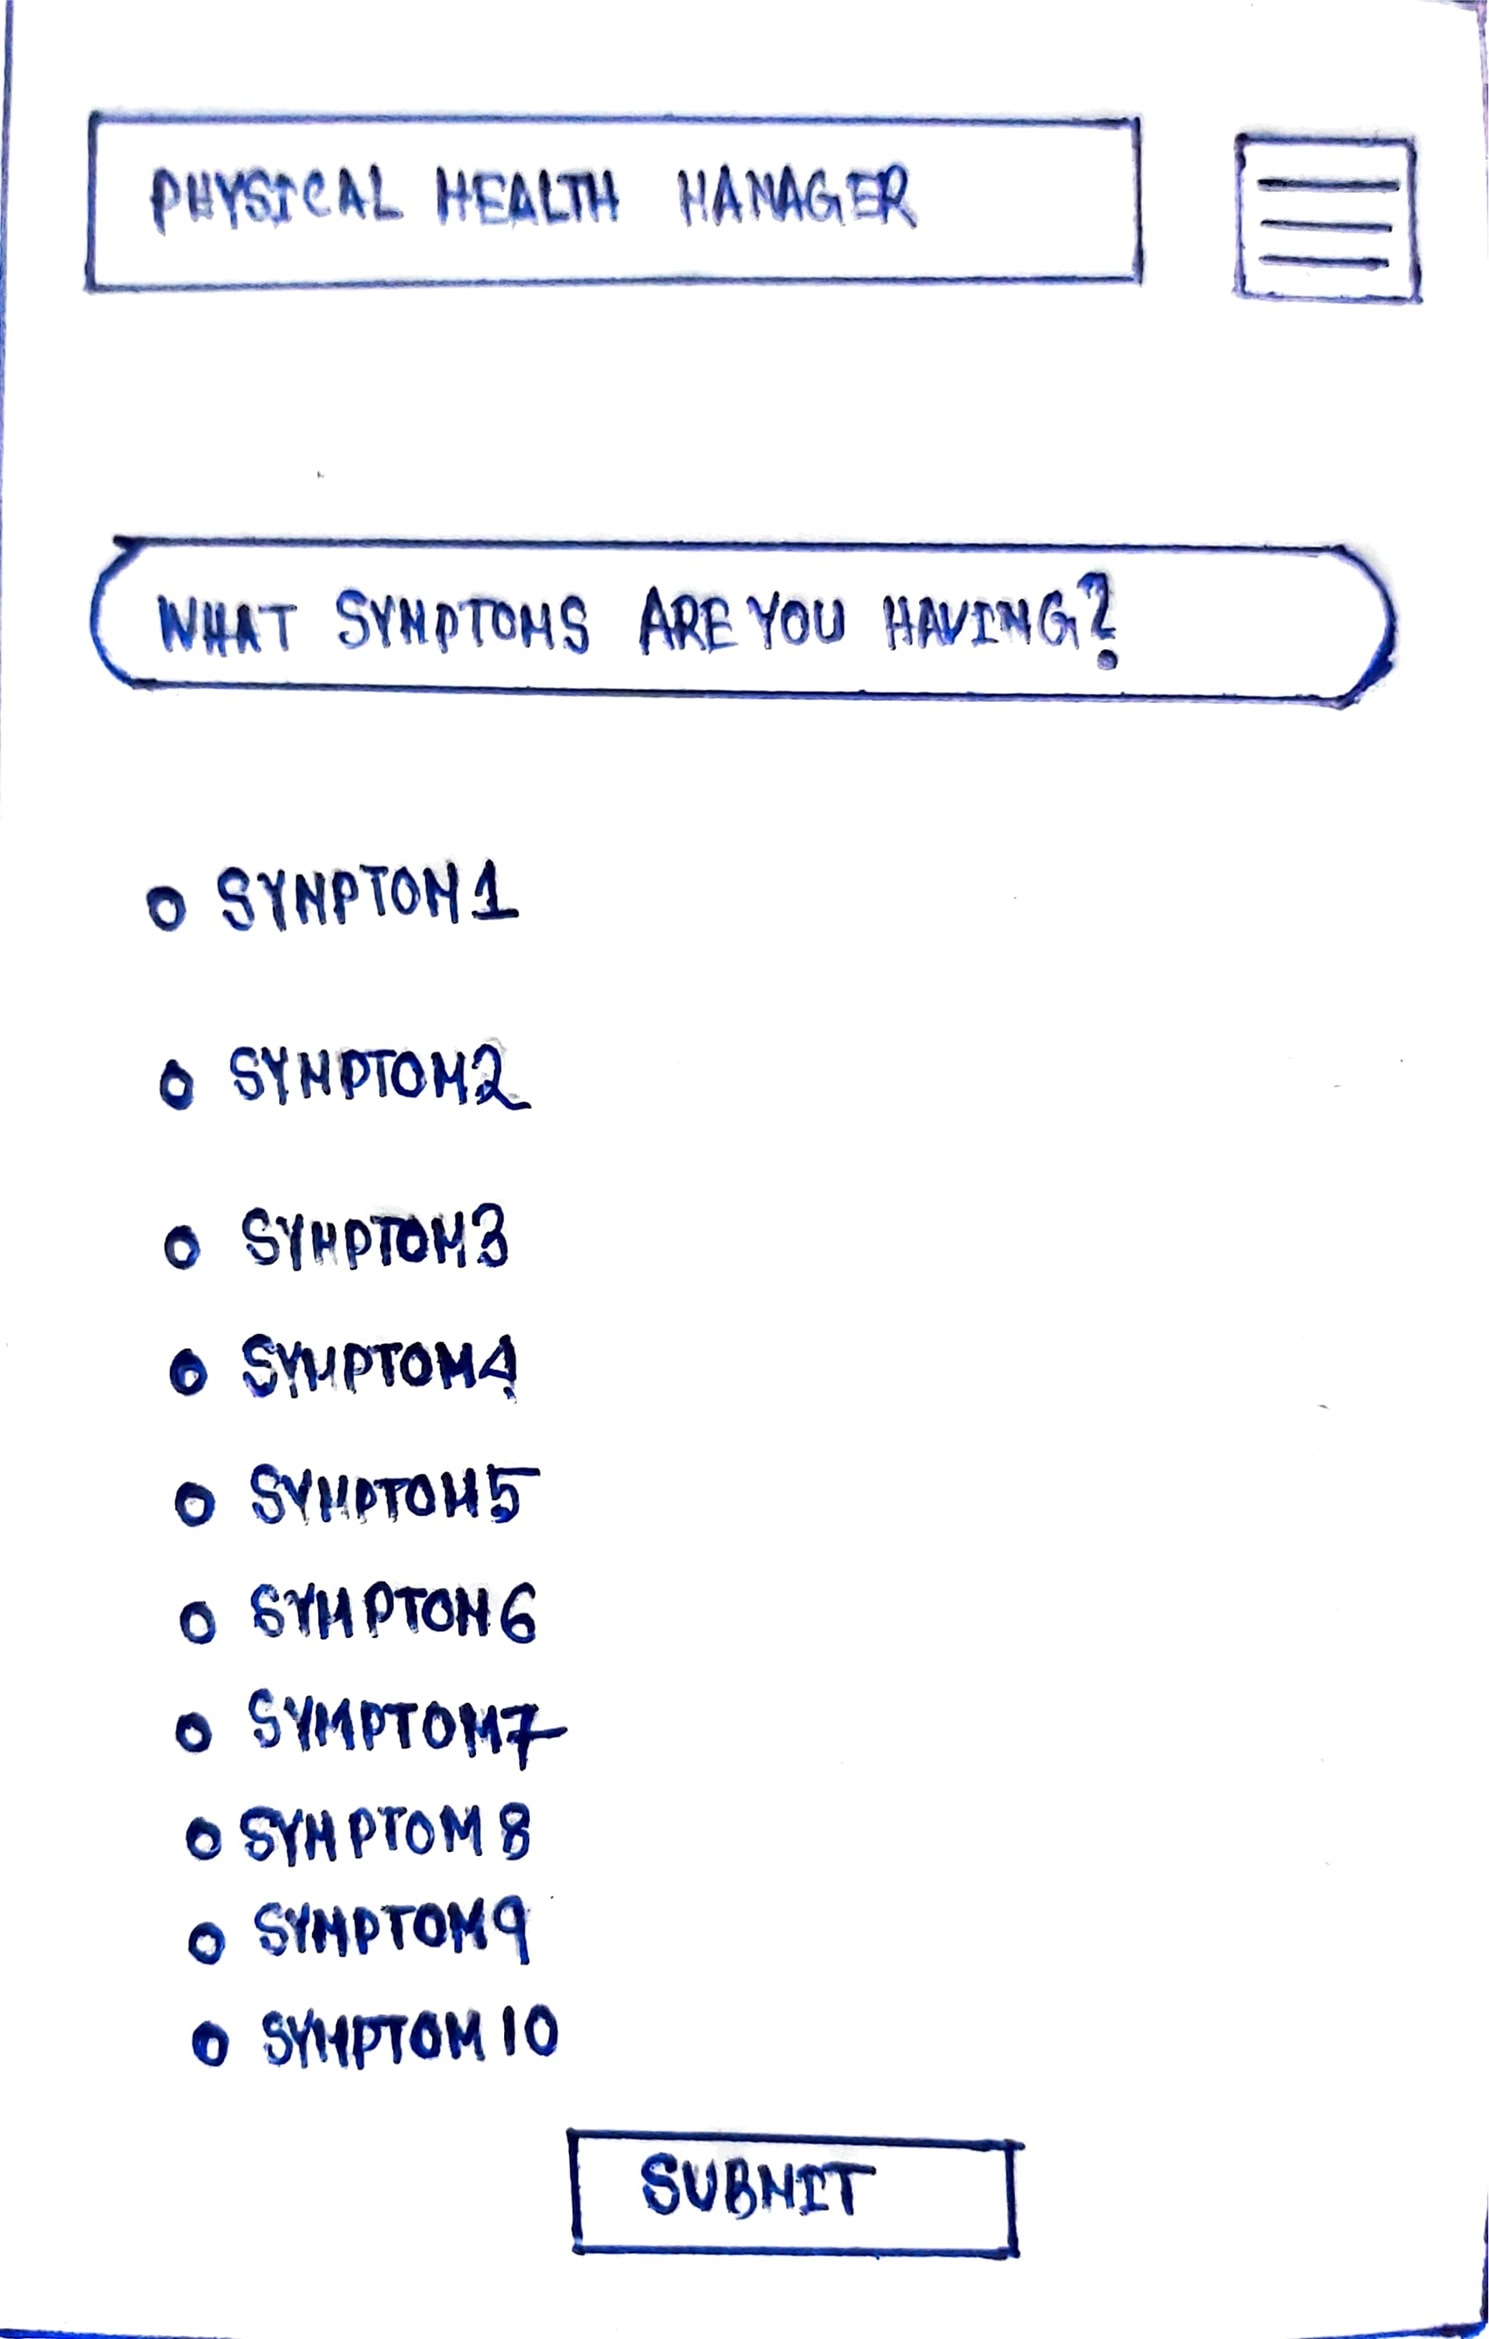 PHYSICAL HEALTH MANAGER
WHAT SYMPTOMS ARE YOU HAVING?
SYMPTOM1
SYMPTOM2
SYMPTOM3
SYMPTOM4
SYMPTOM5
SYMPTOM6
SYMPTOM7
SYMPTOM8
SYMPTOM9
SYMPTOM10
SUBMIT